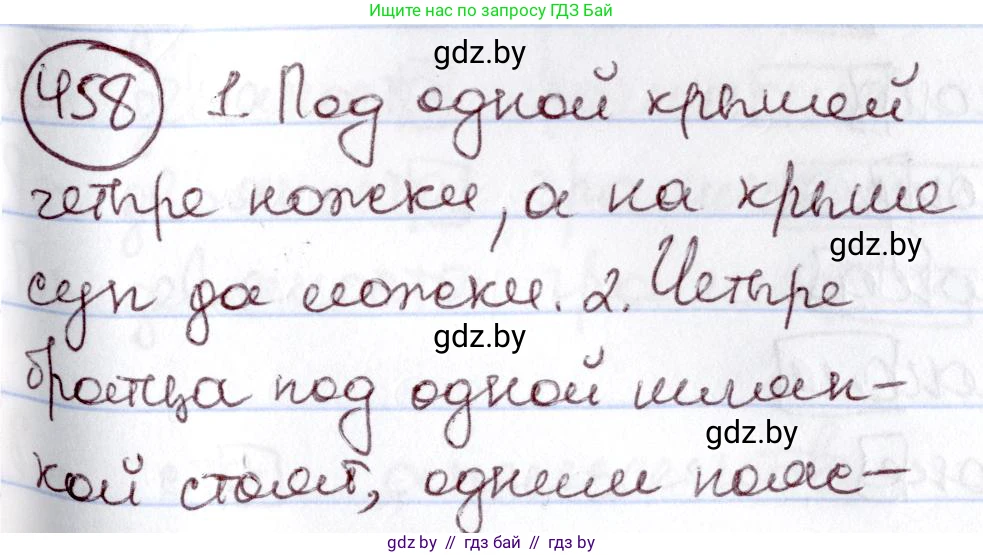 Ищите нас по запросу ГДЗ Бай
gdz.by
458 1. Под одной крышей
четыре ножки, а на крыше
gdz.by
суп да ложки. 2. Четыре
gdz.by
братца под одной шляп-
gdz.by
кой стоят, одним пояс-
gdz.by // гдз бай // gdz by